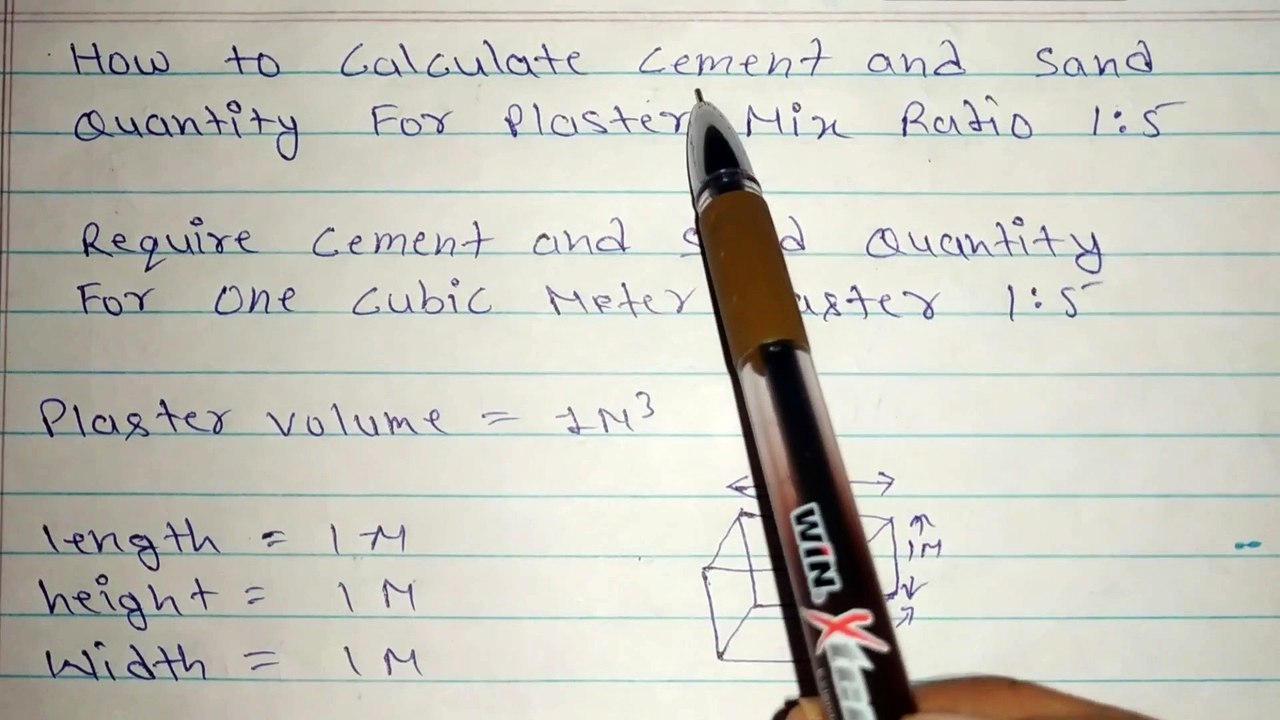 How to Calculate Cement and Sand
Quantity For Plaster Mix Ratio 1:5
Require Cement and Quantity
For One Cubic Meter 1:5
Plaster volume = 1M³
length = 1M
height = 1M
Width = 1M
1M
WIN